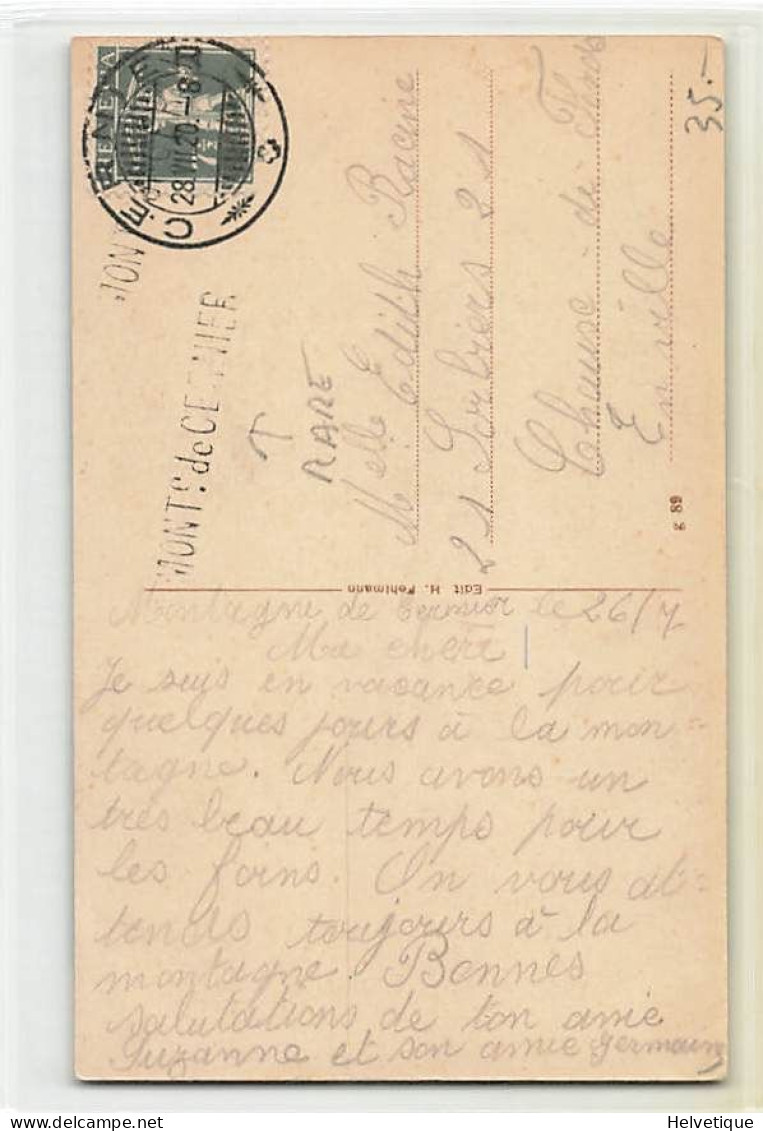 HELVETIA
CERNIER
28.VII.20.–8
MONTS de CERNIER
MONT
35.–
RARE
Melle Edith Racine
21 Sorbiers 21
Chaux-de-Fonds
En ville
g 89
Edit. H. Fehlmann
Montagne de Cernier le 26/7
Ma chère
Je suis en vacance pour
quelques jours à la mon=
tagne. Nous avons un
très beau temps pour
les foins. On vous at=
tends toujours à la
montagne. Bonnes
salutations de ton amie
Suzanne et son amie Germaine
Helvetique